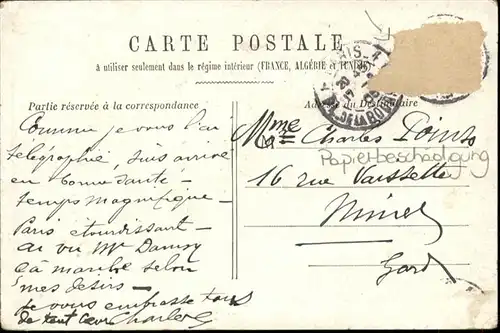 CARTE POSTALE
à utiliser seulement dans le régime intérieur (FRANCE, ALGÉRIE et TUNISIE)
Partie réservée à la correspondance
Comme je vous l'ai
télégraphié, suis arrivé
en bonne santé –
temps magnifique –
Paris étourdissant –
ai vu Mr
ça marche selon
mes désirs –
je vous embrasse tous
de tout cœur Charles
PARIS
DE LA BO
Adresse du Destinataire
Mme Charles Points
Papierbeschädigung
16 rue Vaissette
Nimes
Gard